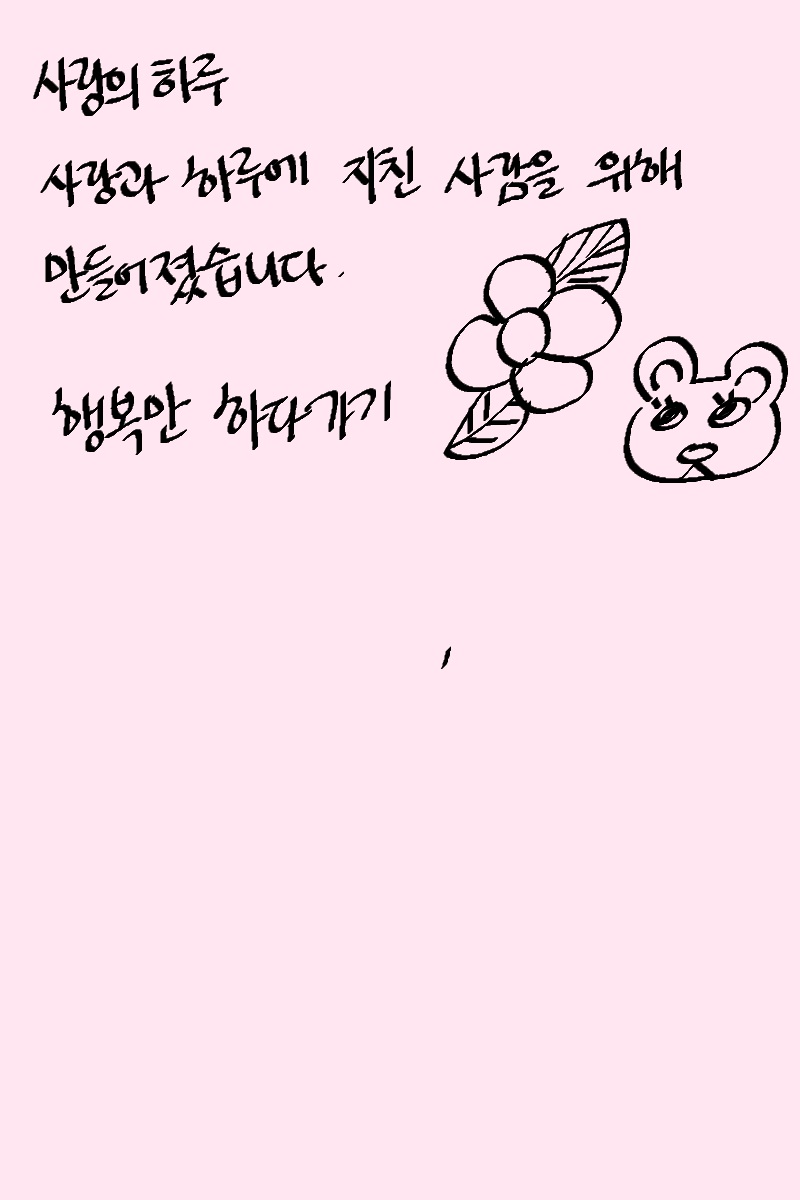 사랑의 하루
사랑과 하루에 지친 사람을 위해
만들어졌습니다.
행복만 하다가기